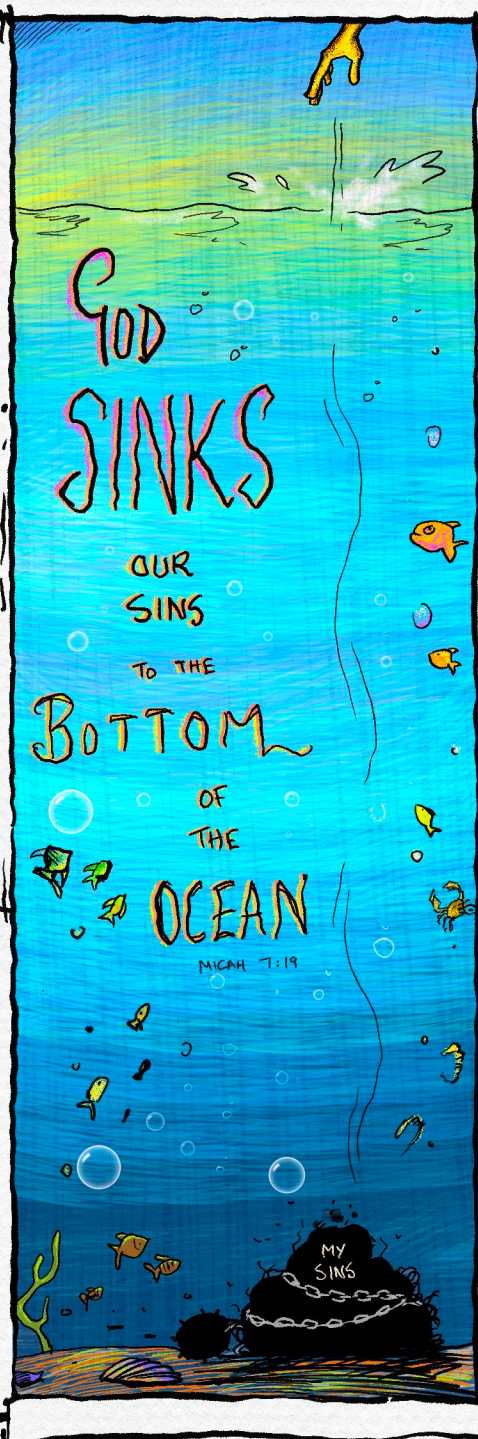 GOD
SINKS
OUR
SINS
TO THE
BOTTOM
OF
THE
OCEAN
MICAH 7:19
MY
SINS